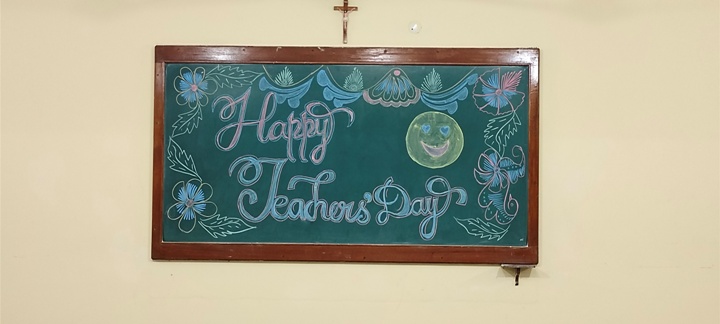 Happy
Teachers' Day